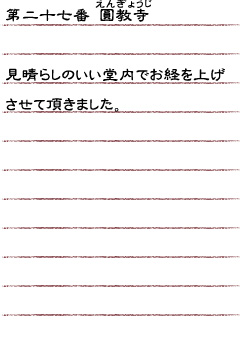 えんぎょうじ
第二十七番 圓教寺
見晴らしのいい堂内でお経を上げ
させて頂きました。